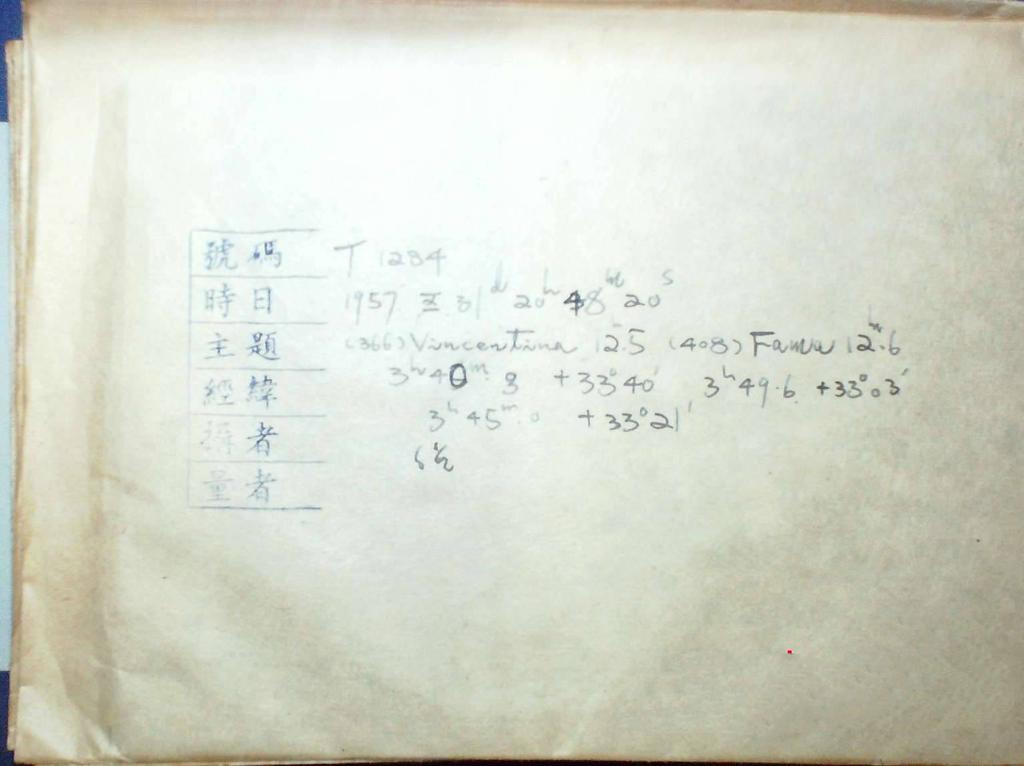 號碼 T 1284
時日 1957 三 31d 20h 48m 20s
主題 (366) Vincentina 12.5 (408) Fama 12m.6
經緯 3h 40m.8 +33°40′ 3h 49.6 +33°03′
3h 45m.0 +33°21′
者
量者